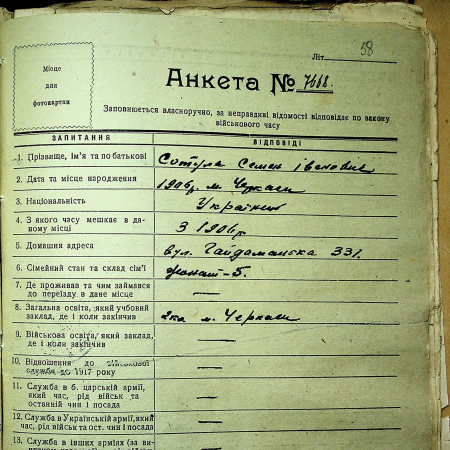 58
Літ.
Місце
для
фотокартки
Анкета № 7688.
Заповнюється власноручно, за неправдиві відомості відповідає по закону
військового часу
ЗАПИТАННЯ
ВІДПОВІДІ
1. Прізвище, ім'я та по батькові Семен Іванович
2. Дата та місце народження 1906 р. м. Черкаси
3. Національність Українець
4. З якого часу мешкає в да-
ному місці З 1906 р.
5. Домашня адреса вул. Гайдамацка 331.
6. Сімейний стан та склад сім'ї женат - 5.
7. Де проживав та чим займався
до переїзду в дане місце —
8. Загальна освіта, який учбовий
заклад, де і коли закінчив м. Черкаси
9. Військова освіта, який заклад,
де і коли закінчив —
10. Відношення до військової
служби до 1917 року —
11. Служба в б. царській армії,
який час, рід військ та
останній чин і посада —
12. Служба в Українській армії, який
час, рід військ та ост. чин і посада —
13. Служба в інших арміях (за ви-